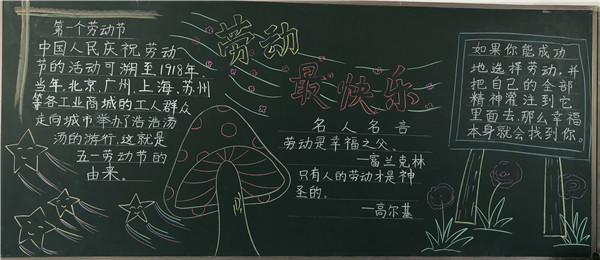 第一个劳动节
中国人民庆祝劳动
节的活动可溯至1918年,
当年,北京,广州,上海,苏州
等各工业商城的工人群众
走向城市举办了浩浩汤
汤的游行,这就是
五一劳动节的
由来。
劳动
最快乐
名人名言
劳动是幸福之父。
—富兰克林
只有人的劳动才是神
圣的。
—高尔基
如果你能成功
地选择劳动,并
把自己的全部
精神灌注到它
里面去,那么幸福
本身就会找到你。